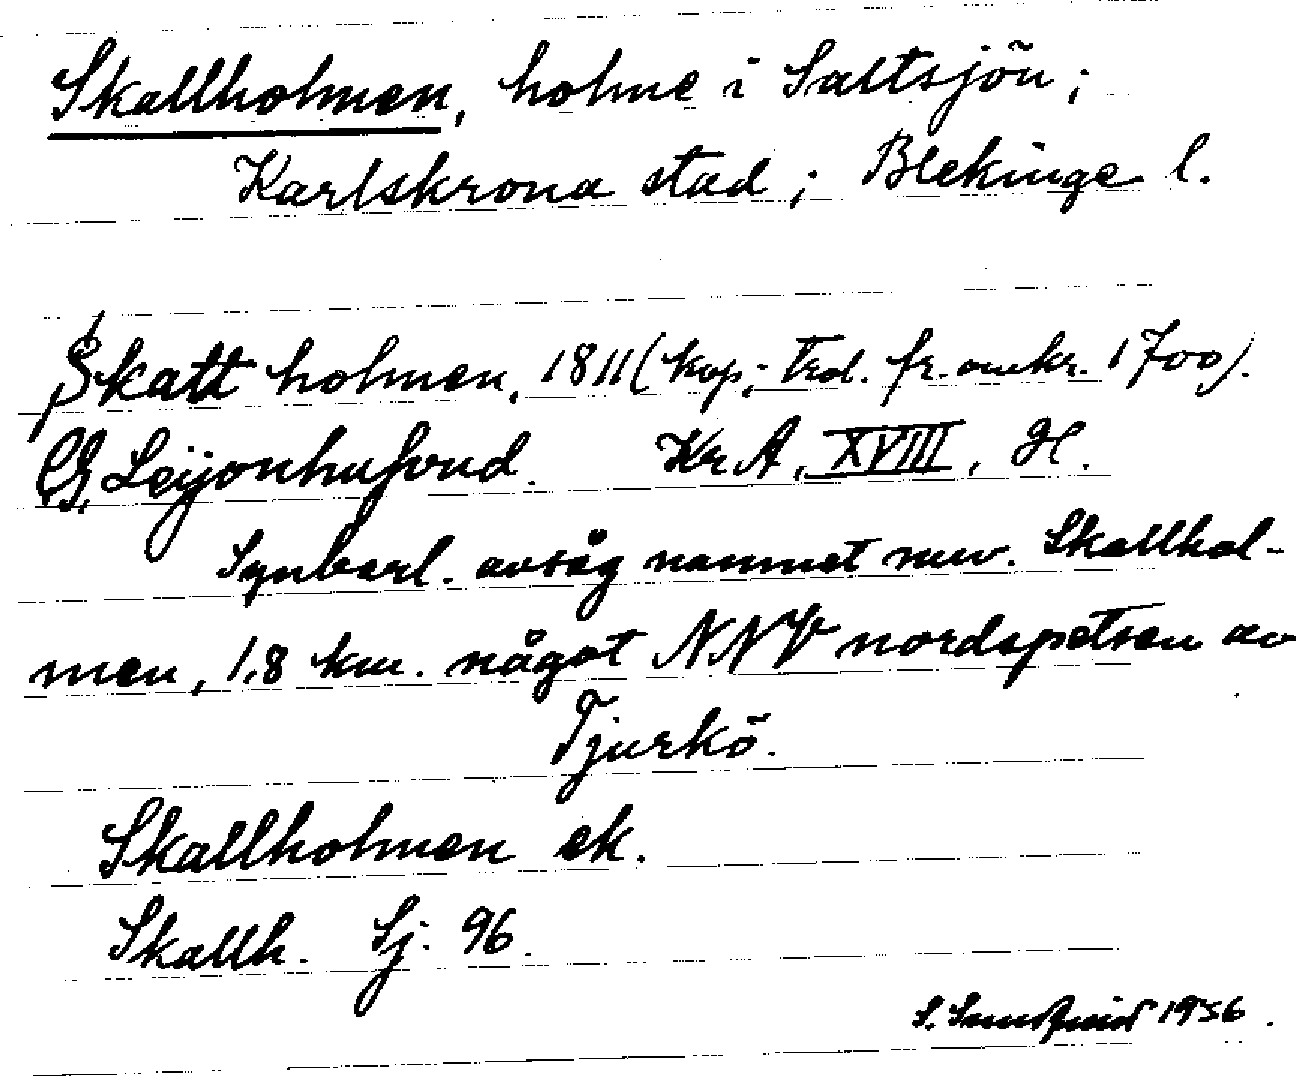 Skallholmen, holme i Saltsjön;
Karlskrona stad; Blekinge l.
Skatt holmen, 1811 (kop; trol. fr. omkr. 1700).
CG, Leijonhufvud. Kr A, XVIII, H.
Synbarl. avsåg namnet nuv. Skallhol-
men, 1,8 km. något NNV nordspetsen av
Tjurkö.
Skallholmen ek.
Skallh. Sj. 96.
S. 1956.